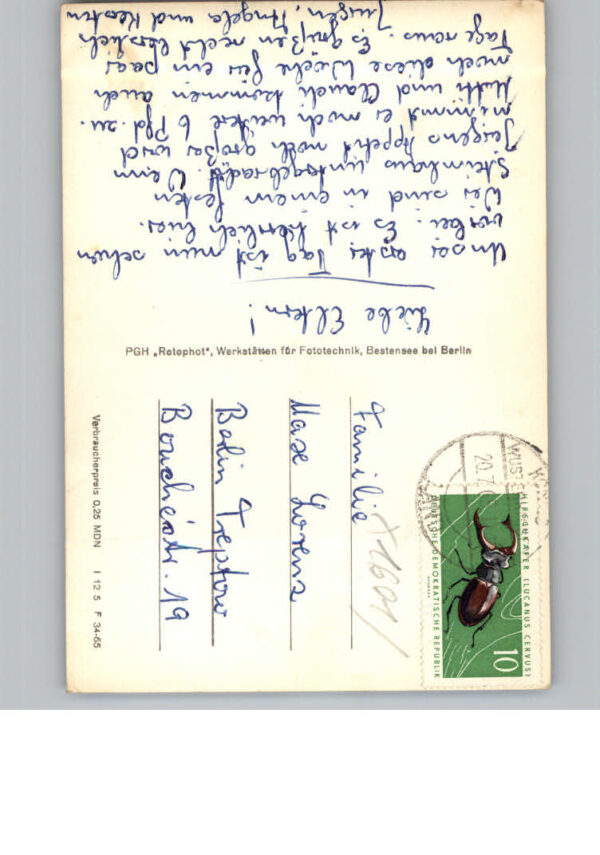 Liebe Eltern!
Unser erster Tag ist nun schon
vorbei. Es ist herrlich hier.
Wir sind in einem festen
Steinhaus untergebracht. Wenn
Jürgens Appetit noch größer wird
nimmt er noch weitere 6 Pfd. zu.
Mutti und Claudi kommen auch
noch diese Woche für ein paar
Tage raus. Es grüßen recht herzlich
Jürgen, Angela und Kersten
PGH „Rotophot“, Werkstätten für Fototechnik, Bestensee bei Berlin
Familie
Max Lorenz
Berlin Treptow
Bouchéstr. 19
Verbraucherpreis 0,25 MDN I 12 5 F 34-65
HIRSCHKÄFER (LUCANUS CERVUS)
10
DEUTSCHE DEMOKRATISCHE REPUBLIK
WUSTERH
20.7.